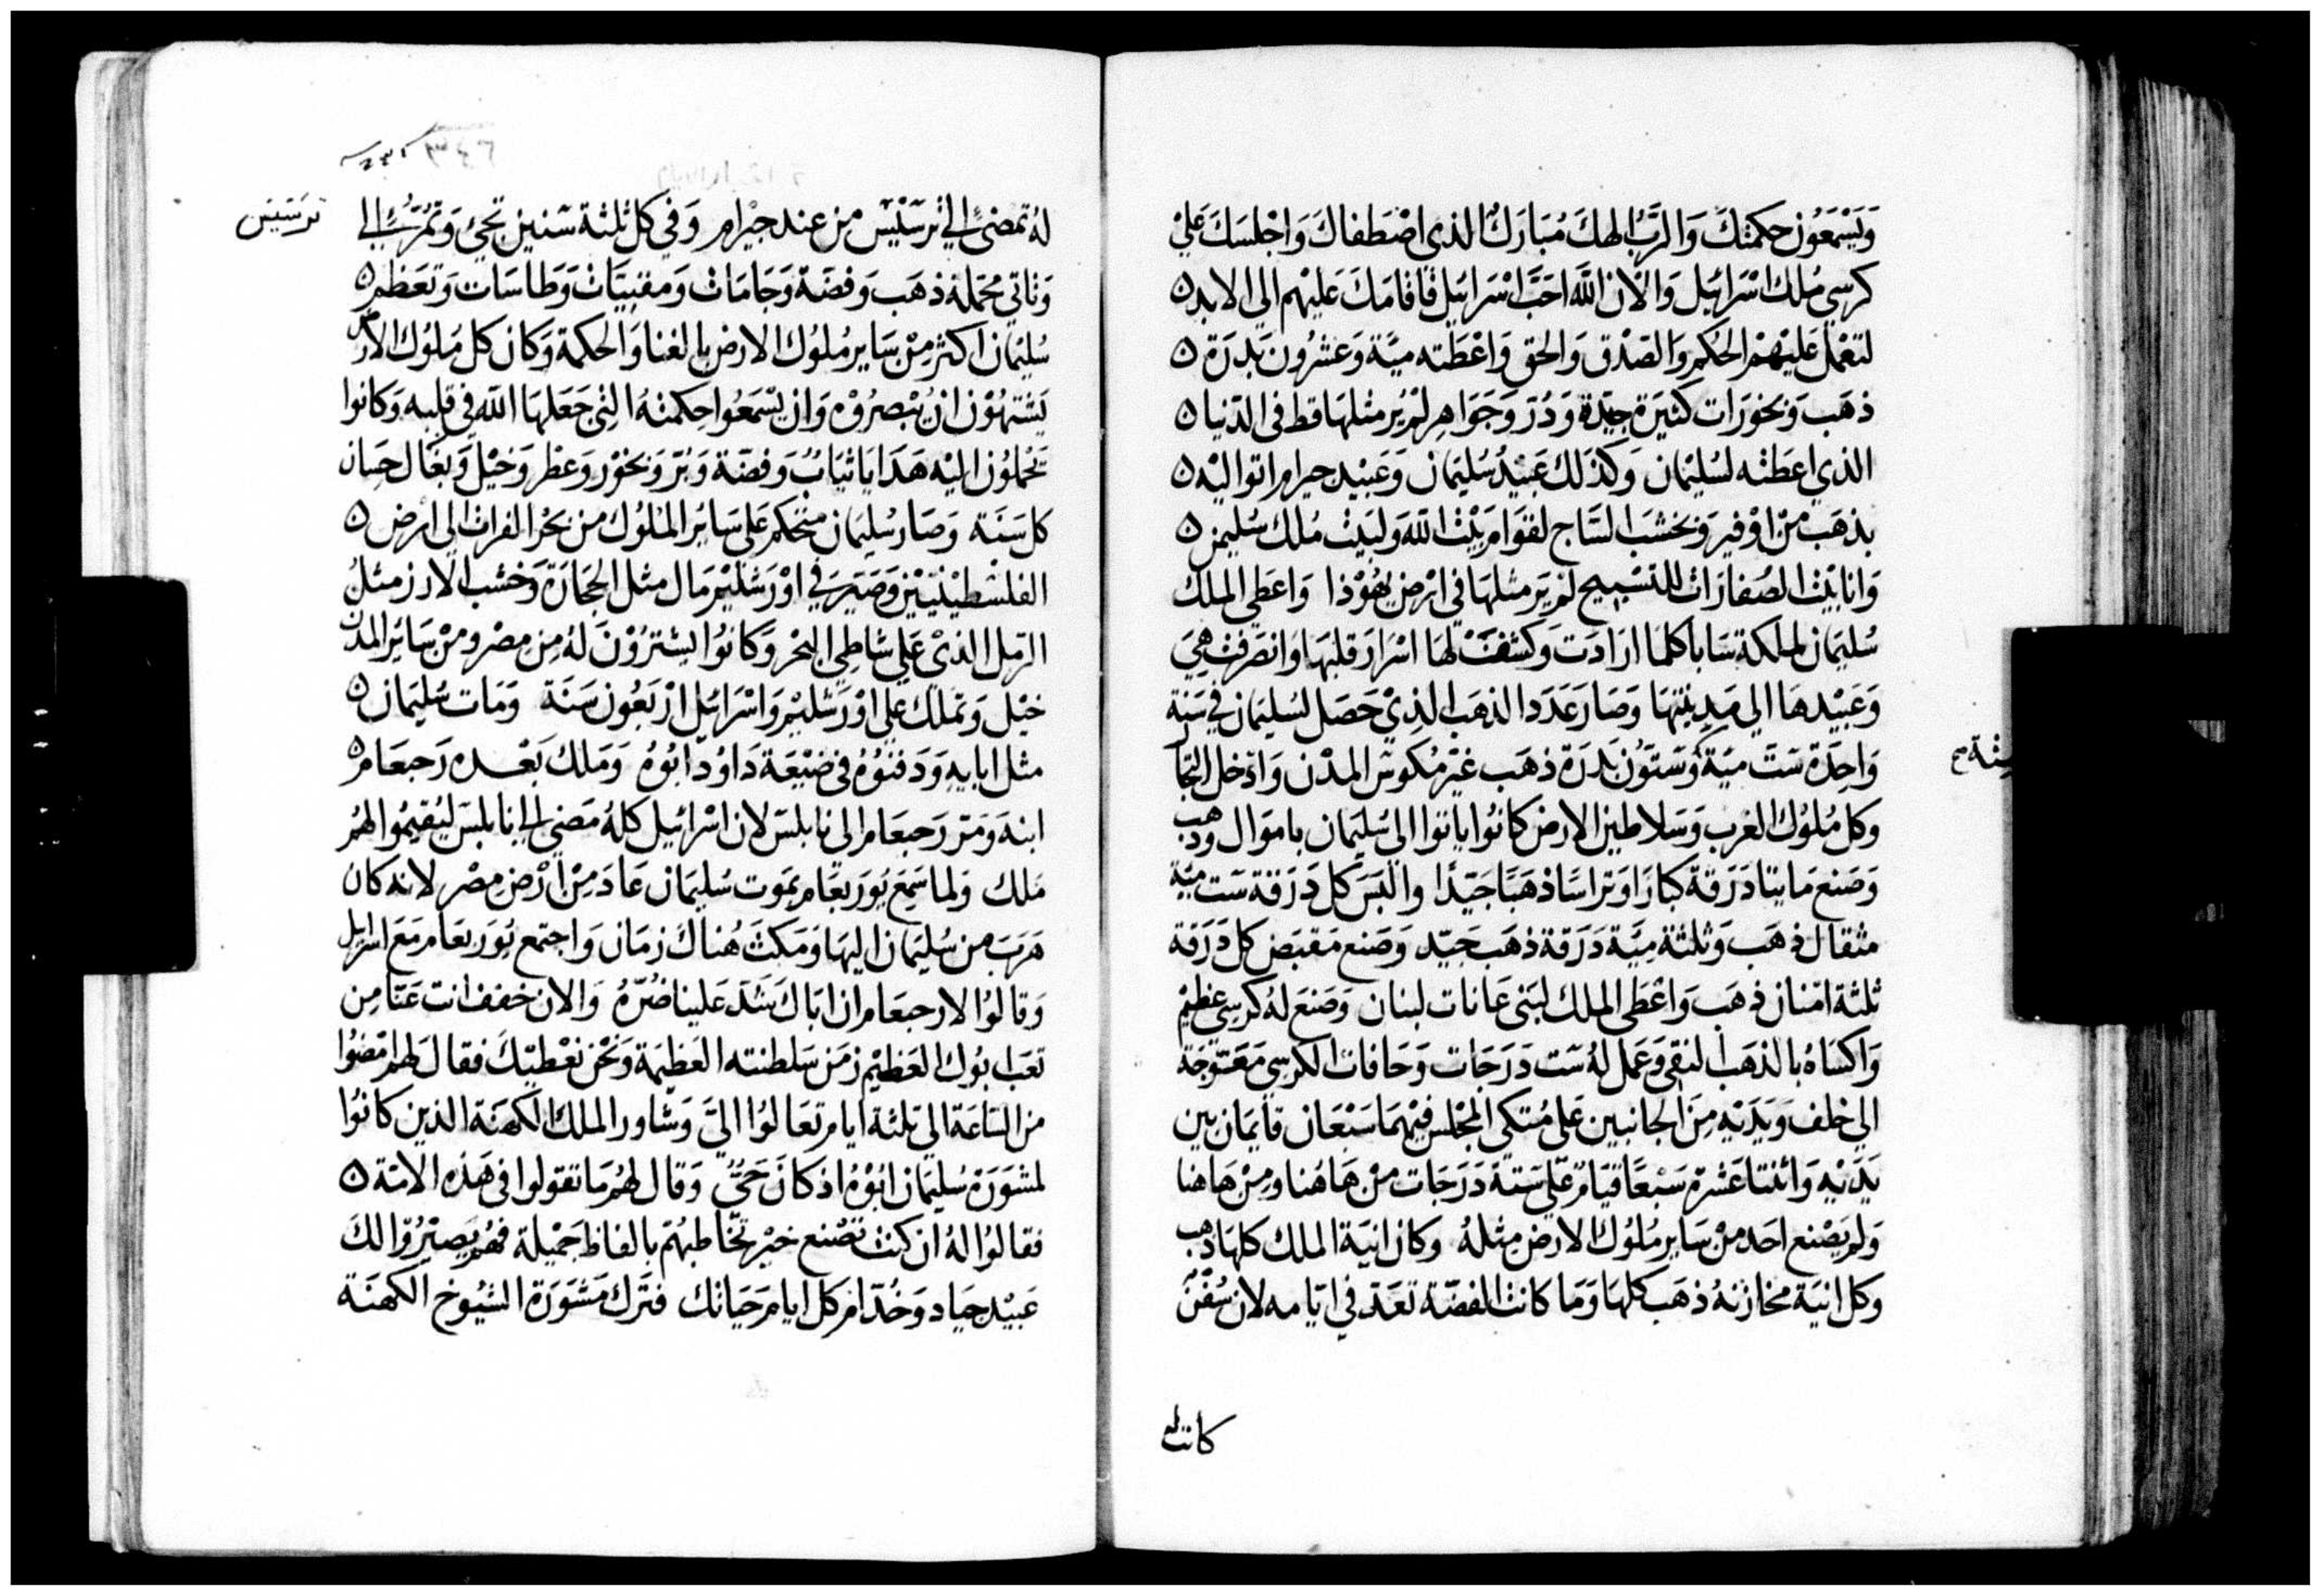 وَيَسْمَعُون حكمتكَ وَالرَّبُ الهكَ مُبَارَكٌ الذي اصْطفاكَ وَاجْلسَكَ عَلي
كرسي مُلك اسْرَائيل وَالان اللّه احَبَّ اسْرَائيل فاقامَكَ عَليْهم الي الابد
لتعْمل عَليْهمْ الحُكم وَالصّدْق وَالحق وَاعْطَته ميَّة وَعشْرُون بَدرَة
ذهَب وَبخورَات كثيرَة جيّدة وَدُرّ وَجَوَاهِر لمْ يُر مثلهَا قط في الدّنيا
الذي اعطَته لسُليْمان وَكذلك عَبيْدُ سُليْمَان وَعَبيْد حيرام اتوا اليْه
بذهَب منْ اوْفير وَبخشبَ السَّاج لقوَام بَيْت اللّه وَلبَيْت مُلك سُليمن
وَانا بَيْت الصُفارَات للتسْبيح لمْ يَر مثلهَا في ارْض يهُوْذا وَاعطَي الملك
سُليمَان لملكة سَابا كلما ارَادَت وَكشفتْ لهَا اسْرَار قلبهَا وَانصَرفت هِيَ
وَعَبيْدهَا الي مَدِينتهَا وَصَار عَدَد الذهَب الذِيْ حَصَل لسُليمَان في سَنة
وَاحِدَة سَتَّ ميَّة وَستوُن بَدرَة ذهَب غيْر مُكوس المدْن وَادْخل التجّا
وَكل مُلوُك العرب وَسَلاطين الارض كانوُا ياتوا الي سُليمَان بامَوَال وَذهب
وَصَنع مَايتا دَرَقة كبَارًا وَتراسًا ذهَبًا جَيّدًا وَالبَسَ كل دَرَقة سَت ميّة
مثقال ذهَب وَثلثة ميَّة دَرَقة ذهَب جَيّد وَصَنع مَقبَض كل دَرَقة
ثلثة امْنان ذهَب وَاعْطَي الملك لبَني عَانات لبنان وَصَنعَ لهُ كرسي عظيْم
وَاكسَاهُ بالذهَب النقي وَعَمل لهُ سَت دَرَجَات وَحَافات الكرسي مَعَوّجَة
الي خلف وَيَدَيْه مِنَ الجانبين عَلي مُتكي المجْلس فيْهمَا سَبْعَان قايمَان بين
يَدَيْه وَاثنتا عَشرة سَبْعًا قيَام عَلي سَتة دَرَجَات منْ هَاهُنا وَمِنْ هَاهنا
وَلم يَصْنع احَد منْ سَاير مُلوُك الارض مِثلهُ وَكان انيَة الملك كلهَا ذهب
وَكل انيَة مخازنهُ ذهَب كلهَا وَمَا كانت الفضّة تعَدّ في ايّامه لان سُفن
كانت
لهُ تمضيْ الي ترسَيْس من عند حِيْرام وَفي كل ثلثة سَنين تجئ وَتمُرّ الي
ترسَيس
وَتاتي محَملة ذهَب وَفضّة وَجَامَات وَمقبيَات وَطاسَات وَتعَظم
سُليمَان اكثر مِنْ سَاير مُلوُك الارض بالغنا وَالحكمة وَكان كل مُلوُك الارض
يَشتهُوْن انْ يُبْصرُوْه وَان يَسْمَعُوا حِكمتهُ التي جَعَلهَا اللّه في قلبه وَكانوا
يحملوُن اليْه هَدَايا ثيَابُ وَفضّة وَبُرّ وَبخوْر وَعطر وَخيْل وَبغال حِسَان
كل سَنَة وَصَار سُليمَان متحكم عَلي سَائر الملوُك من بَحْر الفرات الي ارض
الفلسْطينيّين وَصَيَرَ في اوْرَشليْم مَال مثل الحجَارَة وَخشب الارز مثلُ
الرّمل الذيْ عَلي شاطي البحْر وَكانوُا يشترُوْنَ لهُ مِن مِصْر وَمنْ سَائر المدن
خيْل وَتملك علي اوْرَشليْم وَاسْرَائيل ارْبَعُون سَنَة وَمَات سُليمَان
مثل ابايهِ وَدَفنوُهُ في ضيْعَة دَاوُد ابُوهُ وَمَلك بَعْده رَحبعَام
ابنهُ وَمَرّ رَحبعَام الي نابلسَ لان اسْرَائيل كلهُ مَضي الي نابلسَ ليُقيمُوا لهُم
مَلك وَلما سَمِعَ يُورَبعَام بمَوت سُليمَان عَادَ مِنْ ارْض مِصْر لانه كان
هَرَبَ من سُليمَان اليهَا وَمَكثَ هُناكَ زمَان وَاجتمع يُورَبعَام مَعَ اسرايل
وَقالوُا لارحبعَام ان ابَاكَ شدَّ عَلينا ضُرّهُ وَالان خفف انت عَنّا مِن
تعَب ابُوك العَظيْم زمَن سَلطنته العَظيمَة وَنحْن نعْطيْكَ فقال لهم امْضُوا
من السَّاعَة الي ثلثة ايام تعَالوُا اليَّ وَشاور الملك الكهنَة الذين كانوُا
لمشوَرَة سُليمَان ابُوْهُ اذ كانَ حَيُّ وَقال لهُم مَا تقولوا في هَذه الامّة
فقالوُا لهُ ان كنت تصْنع خيْر تخاطبُهُم بالفاظ جَميْلة فهُم يَصيْرُوا لكَ
عَبيْد جيَاد وَخُدّام كل ايام حَيَاتك فترك مَشوَرَة الشيُوخ الكهنَة